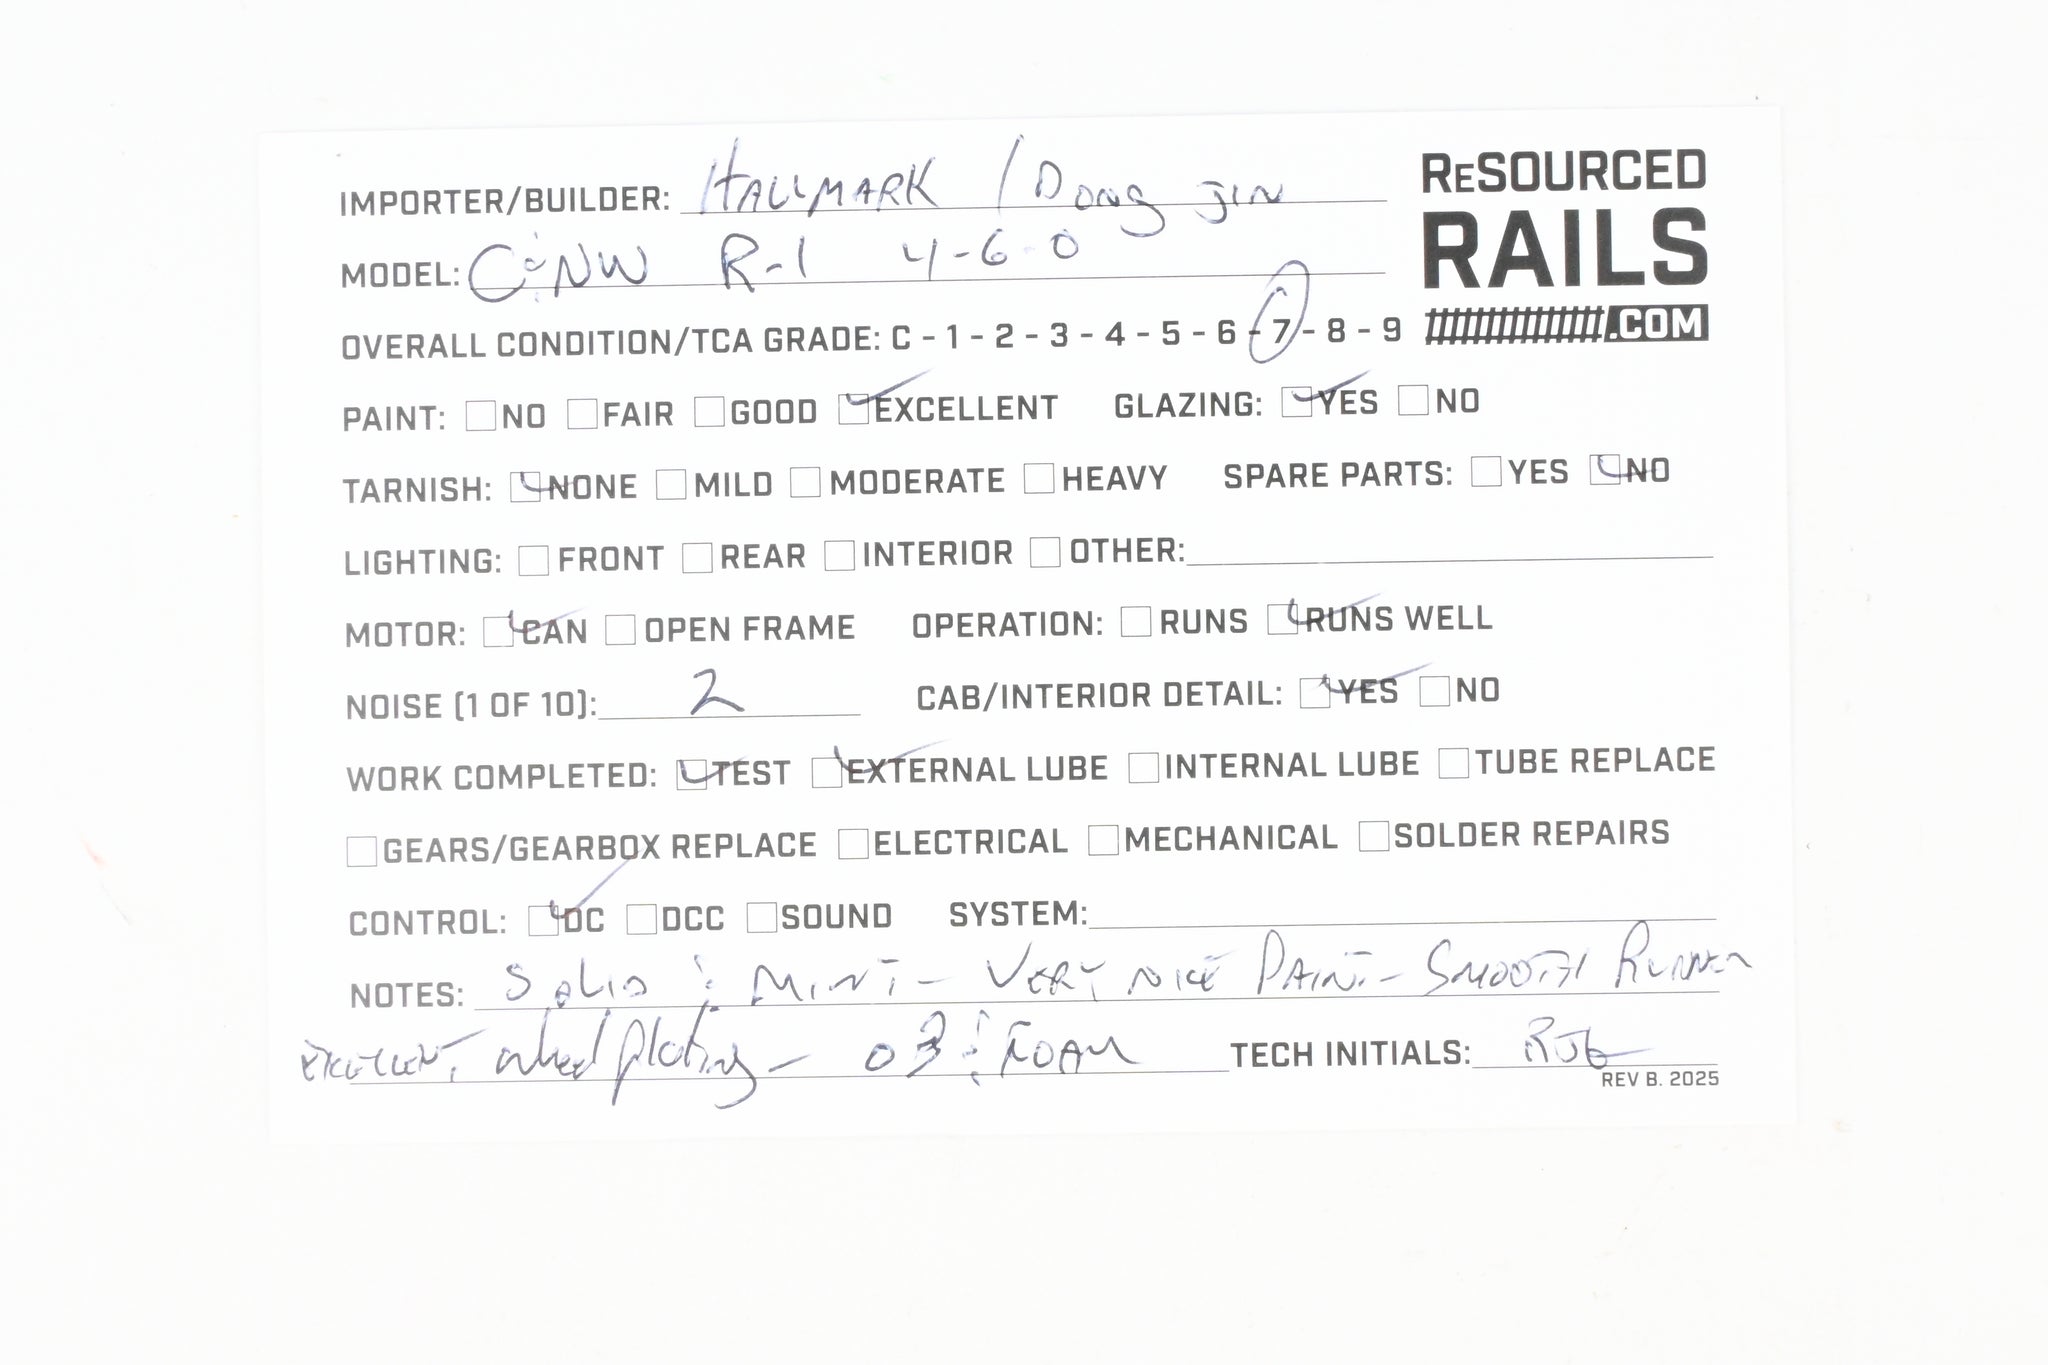 IMPORTER/BUILDER: HALLMARK / Dong JIN
RESOURCED
RAILS
.COM
MODEL: C&NW R-1 4-6-0
OVERALL CONDITION/TCA GRADE: C - 1 - 2 - 3 - 4 - 5 - 6 - 7 - 8 - 9
PAINT: NO FAIR GOOD EXCELLENT GLAZING: YES NO
TARNISH: NONE MILD MODERATE HEAVY SPARE PARTS: YES NO
LIGHTING: FRONT REAR INTERIOR OTHER:
MOTOR: CAN OPEN FRAME OPERATION: RUNS RUNS WELL
NOISE (1 OF 10): 2 CAB/INTERIOR DETAIL: YES NO
WORK COMPLETED: TEST EXTERNAL LUBE INTERNAL LUBE TUBE REPLACE
GEARS/GEARBOX REPLACE ELECTRICAL MECHANICAL SOLDER REPAIRS
CONTROL: DC DCC SOUND SYSTEM:
NOTES: SOLID & MINT - VERY NICE PAINT - SMOOTH RUNNER
EXCELLENT wheel plating - OB & FOAM TECH INITIALS:
REV B. 2025